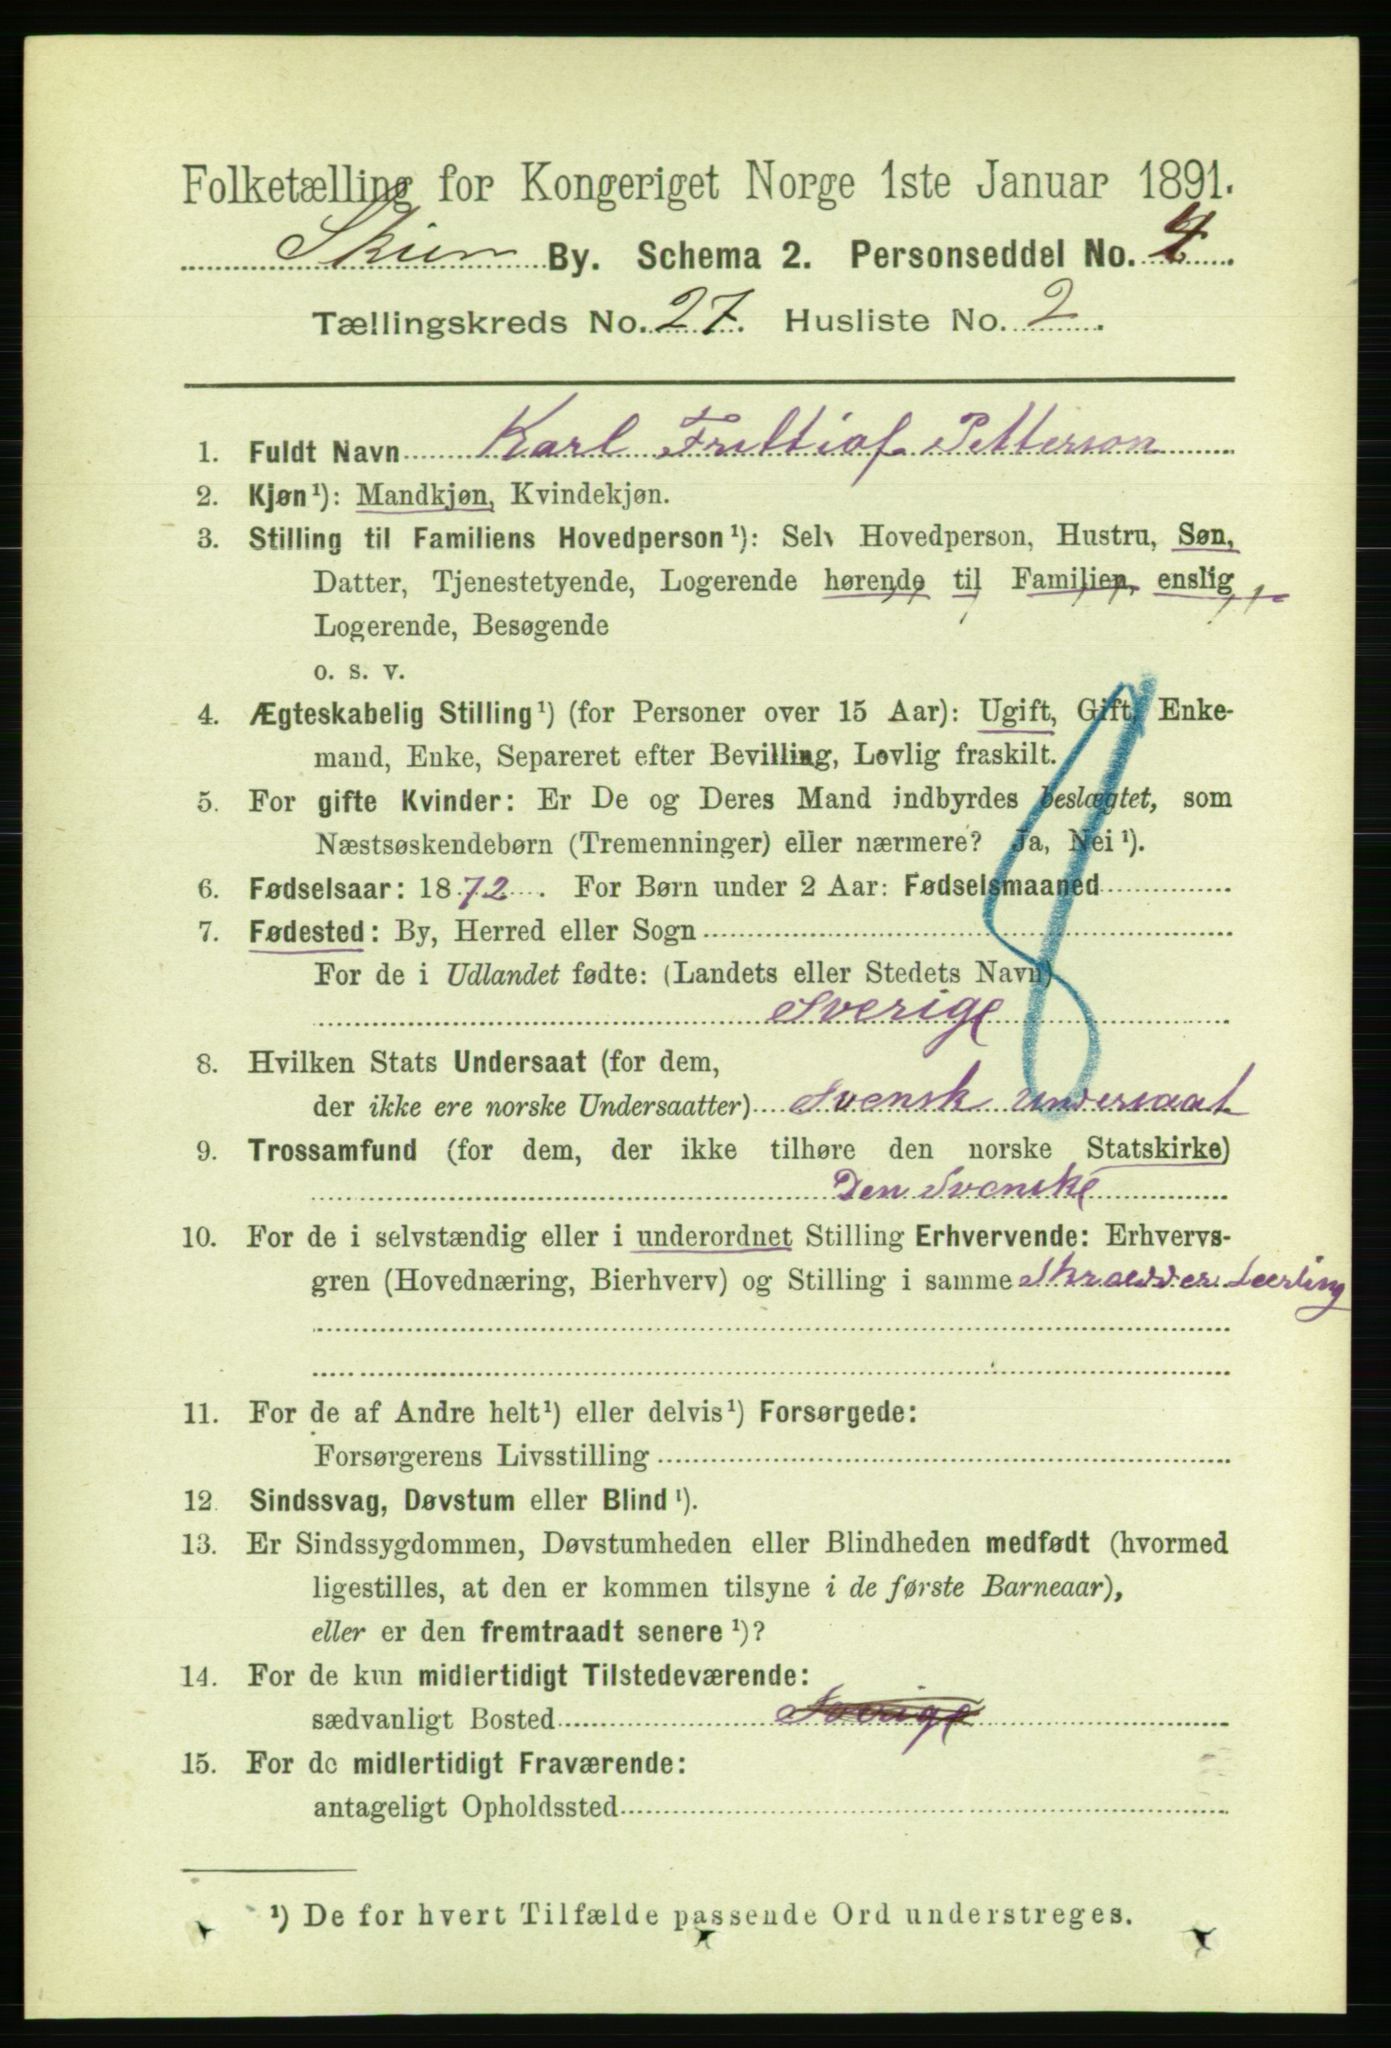 Folketælling for Kongeriget Norge 1ste Januar 1891.
Skien By. Schema 2. Personseddel No. 4
Tællingskreds No. 27. Husliste No. 2.
1. Fuldt Navn Karl Frittiof Petterson
2. Kjøn¹): Mandkjøn, Kvindekjøn.
3. Stilling til Familiens Hovedperson¹): Selv Hovedperson, Hustru, Søn,
Datter, Tjenestetyende, Logerende hørende til Familien, enslig
Logerende, Besøgende
o. s. v.
4. Ægteskabelig Stilling¹) (for Personer over 15 Aar): Ugift, Gift, Enke-
mand, Enke, Separeret efter Bevilling, Lovlig fraskilt.
5. For gifte Kvinder: Er De og Deres Mand indbyrdes beslægtet, som
Næstsøskendebørn (Tremenninger) eller nærmere? Ja, Nei¹).
6. Fødselsaar: 1872. For Børn under 2 Aar: Fødselsmaaned
7. Fødested: By, Herred eller Sogn
For de i Udlandet fødte: (Landets eller Stedets Navn)
Sverige
8. Hvilken Stats Undersaat (for dem,
der ikke ere norske Undersaatter) Svensk undersaat
9. Trossamfund (for dem, der ikke tilhøre den norske Statskirke)
Den Svenske
10. For de i selvstændig eller i underordnet Stilling Erhvervende: Erhvervs-
gren (Hovednæring, Bierhverv) og Stilling i samme Skrædder Leerling
11. For de af Andre helt¹) eller delvis¹) Forsørgede:
Forsørgerens Livsstilling
12. Sindssvag, Døvstum eller Blind¹).
13. Er Sindssygdommen, Døvstumheden eller Blindheden medfødt (hvormed
ligestilles, at den er kommen tilsyne i de første Barneaar),
eller er den fremtraadt senere¹)?
14. For de kun midlertidigt Tilstedeværende:
sædvanligt Bosted Sverige
15. For de midlertidigt Fraværende:
antageligt Opholdssted
¹) De for hvert Tilfælde passende Ord understreges.